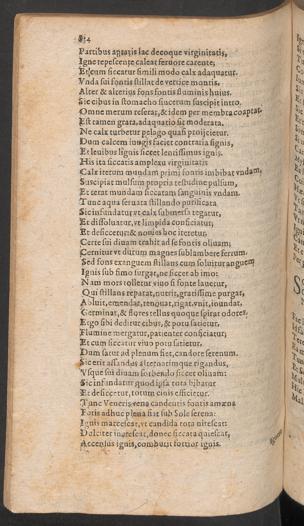 834
Partibus aptatis lac decoque virginitatis,
Igne repescente caleat feruore carente;
Et cum siccatur simili modo calx adaquatur.
Vnda sui fontis stillat de vertice montis.
Alter & alterius fons fontis fluminis huius.
Sic cibus in stomacho succorum suscipit intro.
Omne merum refecat, & idem per membra coaptat.
Est tamen grata, adaquatio sic moderata.
Ne calx turbetur pelago quasi proijcietur.
Dum calcem iungis faciet contraria signis,
Et leuibus lignis siccet lentissimus ignis.
His ita siccatis amplexu virginitatis
Calx iterum mundam primi fontis imbibat vndam,
Suscipiat mulsum propria testudine pulsum,
Et terat mundam siccatam sanguinis vndam.
Tunc aqua seruata stillando putificata
Sic infundatur, vt calx submersa tegatur,
Et dissoluatur, vt limpida conficiatur,
Et desiccetur: & nouies hoc iteretur,
Certe sui diuam trahit ad se fontis oliuam;
Cernitur vt durum magnes sublambere ferrum.
Sed fons exanguem stillans cum soluitur anguem
Ignis sub fimo surgat, ne siccet ab imo:
Nam mors tolletur viuo si fonte lauetur,
Qui stillans reparat, nutrit, gratissime purgat,
Abluit, emendat, renouat, rigat, vnit, foundat.
Germinat, & flores tellus quoque spirat odores.
Ergo sibi deditur cibus, & potu satietur.
Flumine mergatur, patienter conficiatur;
Et cum siccatur viuo potu satietur.
Dum satur ad plenum fiet, candore serenum.
Sic erit assandus alternatimque rigandus,
Vsque sui diuam sorbendo siccet oliuam:
Sic infundatur quod ipsa tota bibatur
Et desiccetur, totum cinis efficitur.
Tunc Veneris vena candentis fontis amæna
Fotis adhuc plena fiat sub Sole serena:
Ignis marcescat, vt candida tota nitescat:
Dulciter ignescat, donec siccata quiescat,
Accensus ignis, comburit fortior ignis.